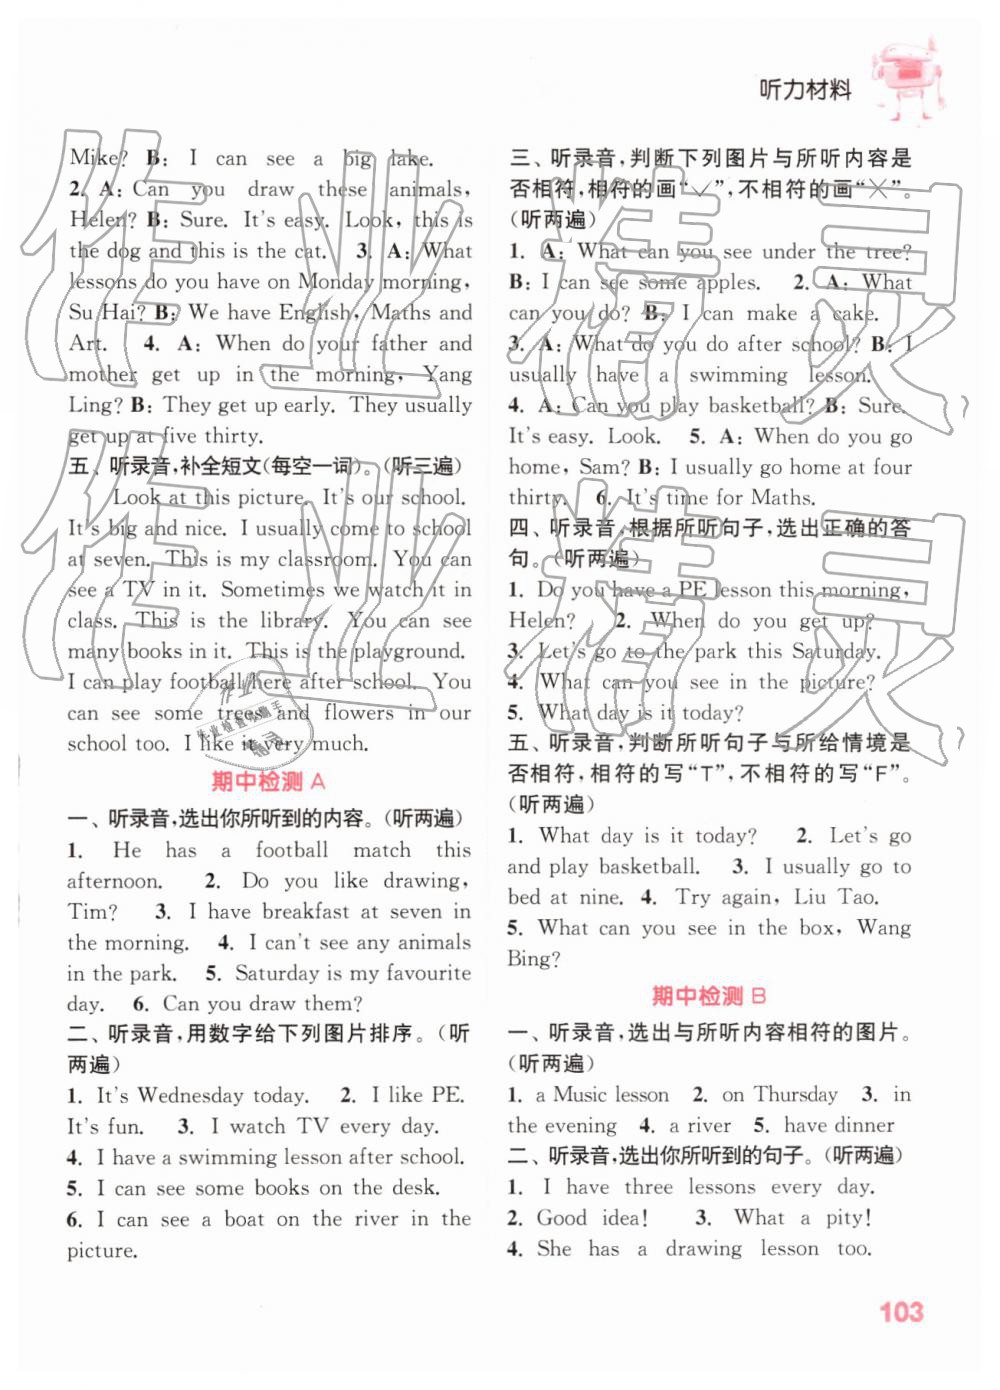 听力材料
Mike? B: I can see a big lake.
2. A: Can you draw these animals,
Helen? B: Sure. It's easy. Look, this is
the dog and this is the cat. 3. A: What
lessons do you have on Monday morning,
Su Hai? B: We have English, Maths and
Art. 4. A: When do your father and
mother get up in the morning, Yang
Ling? B: They get up early. They usually
get up at five thirty.
五、听录音,补全短文(每空一词)。(听三遍)
Look at this picture. It's our school.
It's big and nice. I usually come to school
at seven. This is my classroom. You can
see a TV in it. Sometimes we watch it in
class. This is the library. You can see
many books in it. This is the playground.
I can play football here after school. You
can see some trees and flowers in our
school too. I like it very much.
期中检测 A
一、听录音,选出你所听到的内容。(听两遍)
1. He has a football match this
afternoon. 2. Do you like drawing,
Tim? 3. I have breakfast at seven in
the morning. 4. I can't see any animals
in the park. 5. Saturday is my favourite
day. 6. Can you draw them?
二、听录音,用数字给下列图片排序。(听
两遍)
1. It's Wednesday today. 2. I like PE.
It's fun. 3. I watch TV every day.
4. I have a swimming lesson after school.
5. I can see some books on the desk.
6. I can see a boat on the river in the
picture.
三、听录音,判断下列图片与所听内容是
否相符,相符的画“✓”,不相符的画“✕”。
(听两遍)
1. A: What can you see under the tree?
B: I can see some apples. 2. A: What
can you do? B: I can make a cake.
3. A: What do you do after school? B: I
usually have a swimming lesson.
4. A: Can you play basketball? B: Sure.
It's easy. Look. 5. A: When do you go
home, Sam? B: I usually go home at four
thirty. 6. It's time for Maths.
四、听录音,根据所听句子,选出正确的答
句。(听两遍)
1. Do you have a PE lesson this morning,
Helen? 2. When do you get up?
3. Let's go to the park this Saturday.
4. What can you see in the picture?
5. What day is it today?
五、听录音,判断所听句子与所给情境是
否相符,相符的写“T”,不相符的写“F”。
(听两遍)
1. What day is it today? 2. Let's go
and play basketball. 3. I usually go to
bed at nine. 4. Try again, Liu Tao.
5. What can you see in the box, Wang
Bing?
期中检测 B
一、听录音,选出与所听内容相符的图片。
(听两遍)
1. a Music lesson 2. on Thursday 3. in
the evening 4. a river 5. have dinner
二、听录音,选出你所听到的句子。(听两遍)
1. I have three lessons every day.
2. Good idea! 3. What a pity!
4. She has a drawing lesson too.
103
作业精灵
作业精灵